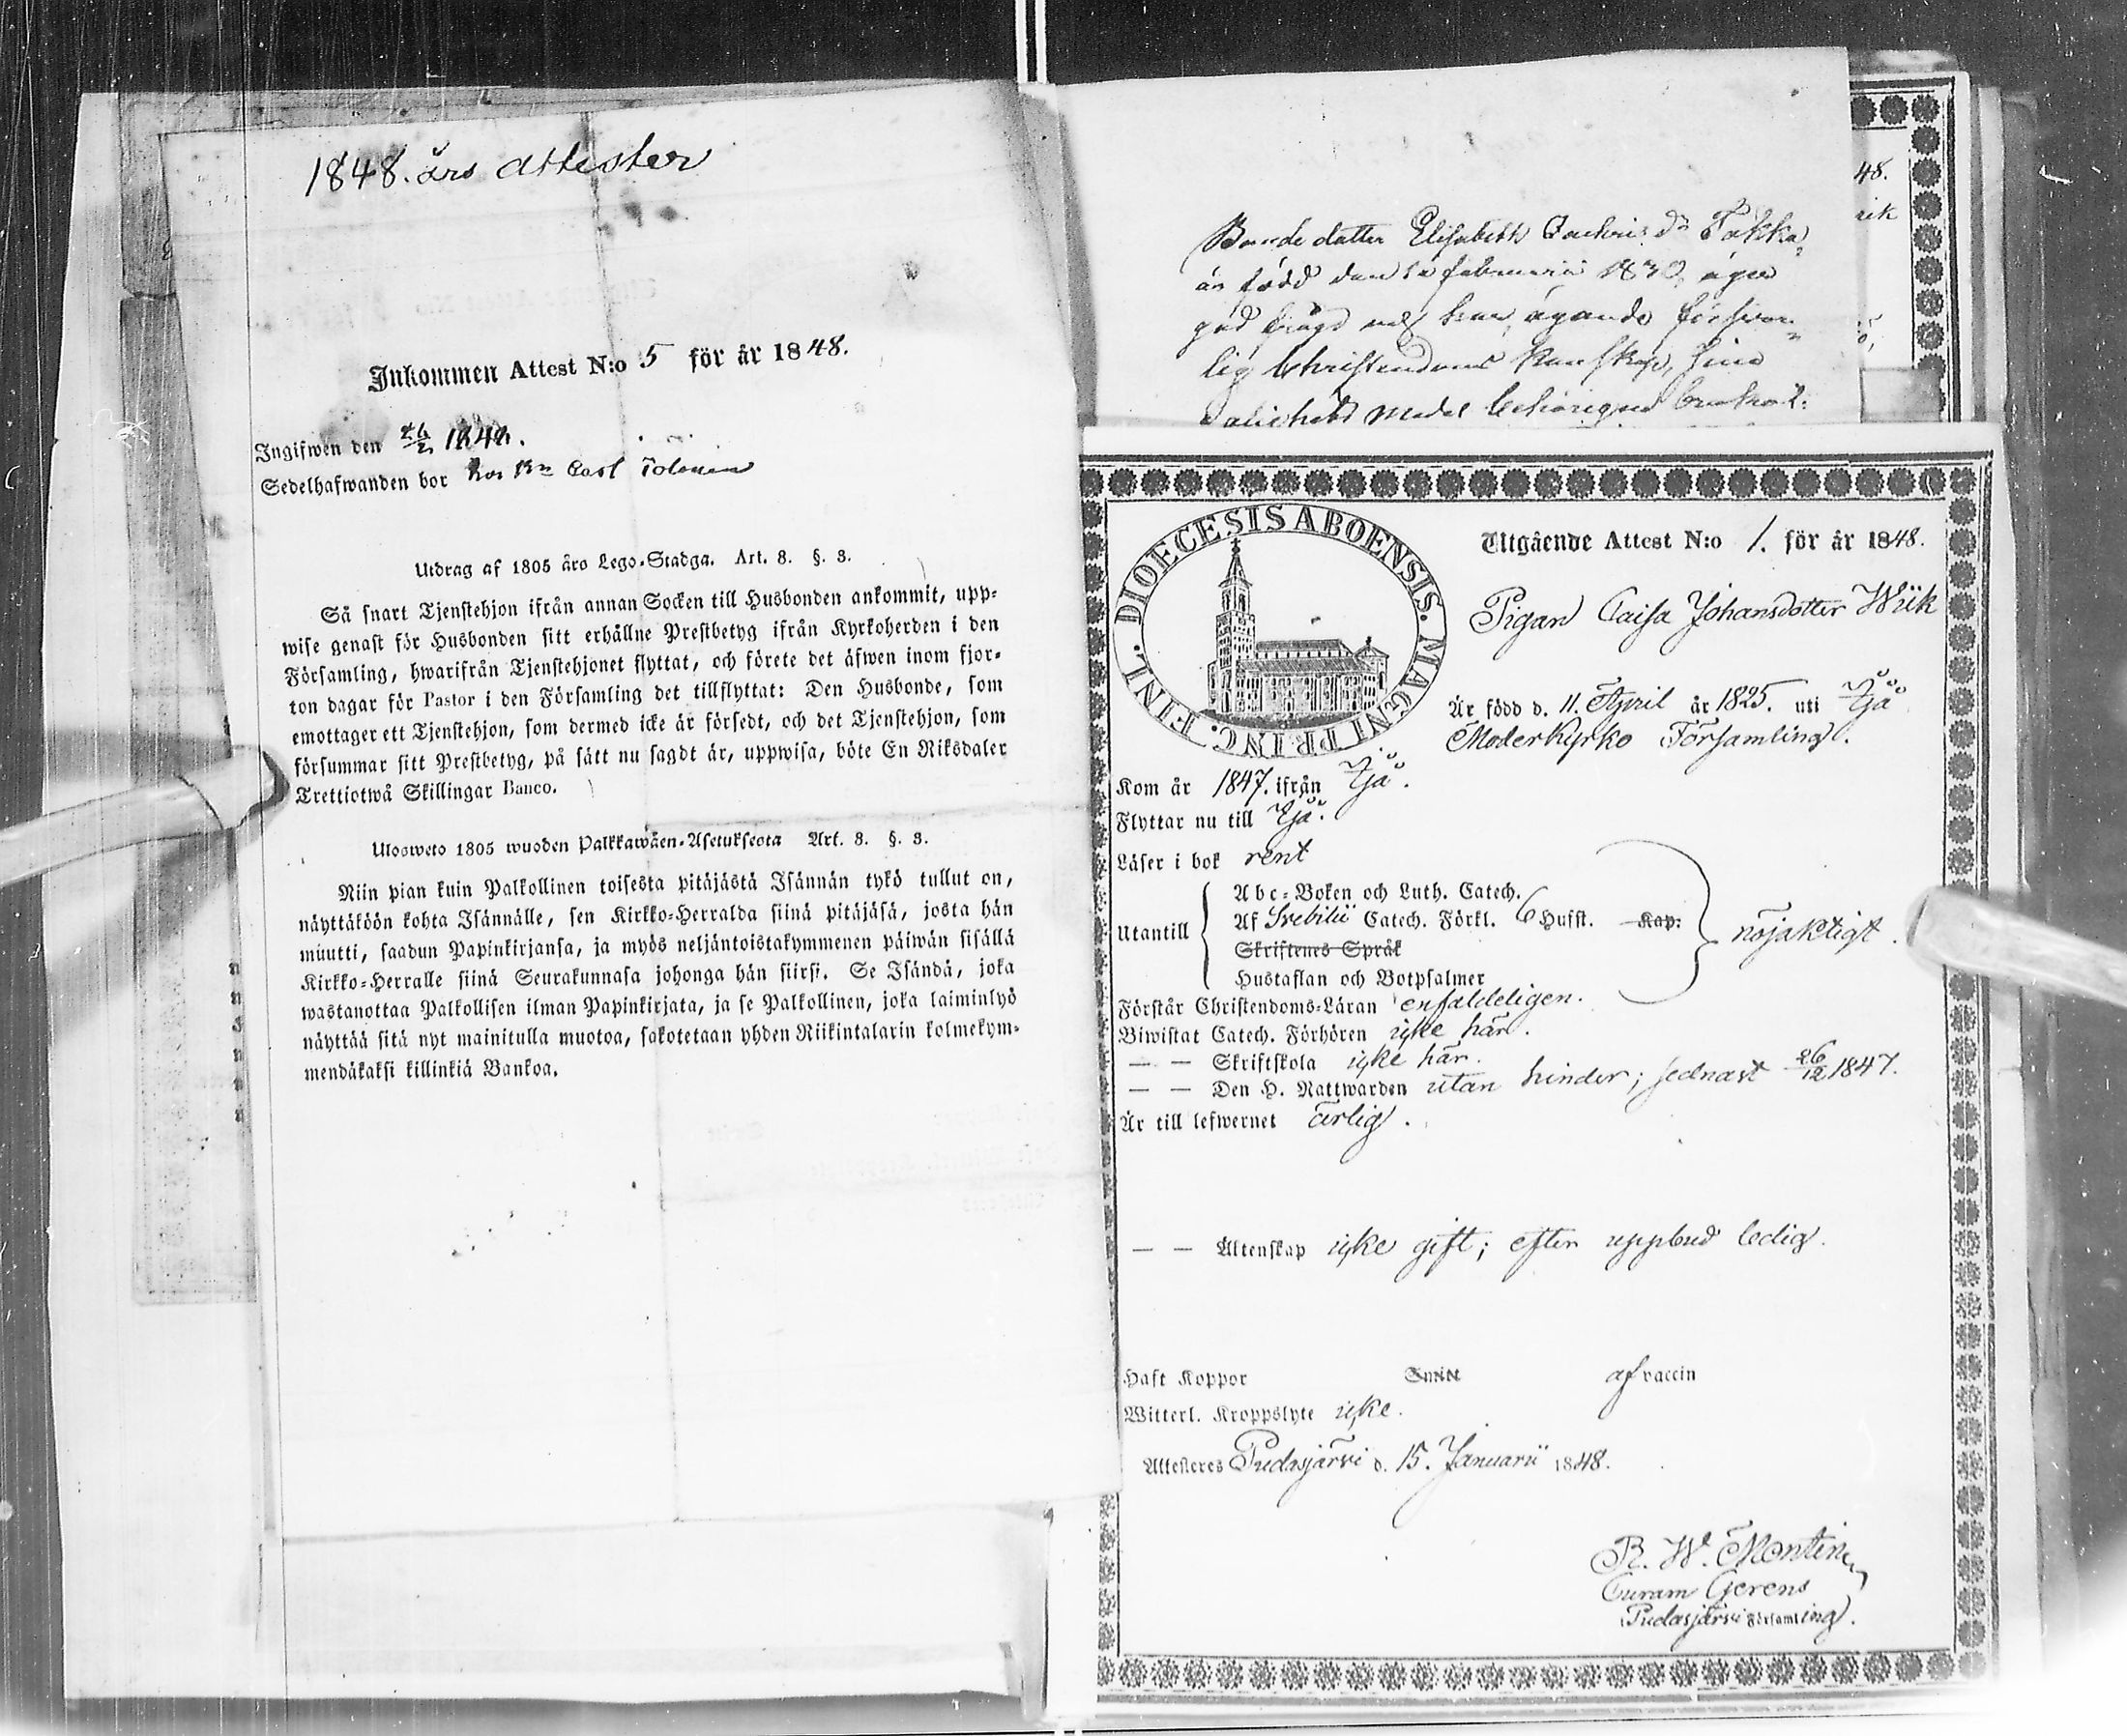 1848. års Attester
Inkommen Attest N:o 5 för år 1848.
Ingifwen den 26/2 1848.
Sedelhafwanden bor hos Carl Tolonen
Utdrag af 1805 års Lego-Stadga. Art. 8. §. 3.
Så snart Tjenstehjon ifrån annan Socken till Husbonden ankommit, upp-
wise genast för Husbonden sitt erhållne Prestbetyg ifrån Kyrkoherden i den
Församling, hwarifrån Tjenstehjonet flyttat, och förete det äfwen inom fjor-
ton dagar för Pastor i den Församling det tillflyttat: Den Husbonde, som
emottager ett Tjenstehjon, som dermed icke är försedt, och det Tjenstehjon, som
försummar sitt Prestbetyg, på sätt nu sagdt är, uppwisa, böte En Riksdaler
Trettiotwå Skillingar Banco.
Uloswеto 1805 wuoden Palkkawäen-Asetuksesta Art. 8. §. 3.
Niin pian kuin Palkollinen toisesta pitäjästä Isännän tykö tullut on,
näyttäköön kohta Isännälle, sen Kirkko-Herralda siinä pitäjäsä, josta hän
muutti, saadun Papinkirjansa, ja myös neljäntoistakymmenen päiwän sisällä
Kirkko-Herralle siinä Seurakunnasa johonga hän siirsi. Se Isändä, joka
wastanottaa Palkollisen ilman Papinkirjata, ja se Palkollinen, joka laiminlyö
näyttää sitä nyt mainitulla muotoa, sakotetaan yhden Riikintalarin kolmekym-
mendäkaksi killinkiä Bankoa.
Bonde dotter Elisabeth Zachris dr Takka,
är född den Februarii 1830, äger
god frägd och har ägande försvar-
lig Christendoms kunskap, sine
salighets medel behörigen brukat.
48.
rik
DIOECESIS ABOENSIS. MAGNI PRINC. FINL.
Utgående Attest N:o 1. för år 1848.
Pigan Caisa Johansdotter Wiik
Är född d. 11. April år 1825. uti Ijå
Moderkyrko Församling.
Kom år 1847. ifrån Ijå.
Flyttar nu till Ijå.
Läser i bok rent
Utantill
Abc-Boken och Luth. Catech.
Af Svebilii Catech. Förkl. 6 Hufst. Kap.
Skriftenes Språk
Hustaflan och Botpsalmer
nöjaktigt.
Förstår Christendoms-Läran enfaldeligen.
Biwistat Catech. Förhören icke här.
— — Skriftskola icke här.
— — Den H. Nattwarden utan hinder; sednast 26/12 1847.
Är till lefwernet ärlig.
— — Äktenskap icke gift; efter uppbud ledig.
Haft Koppor Smitt af vaccin
Witterl. Kroppslyte icke.
Attesteres Pudasjärvi d. 15. Januarii 1848.
R. W. Montin
Curam Gerens
Pudasjärvi Församling.